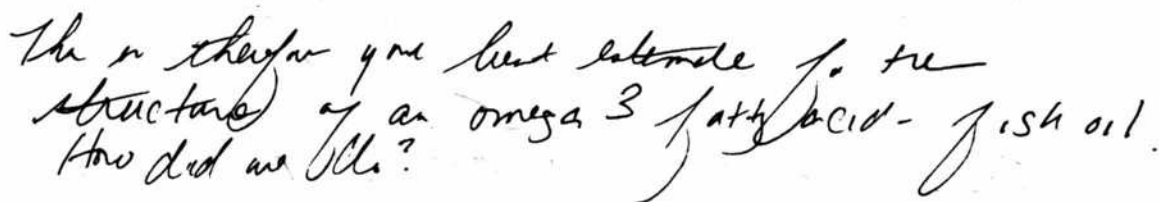 This is therefore your best estimate for the
structure of an omega 3 fatty acid - fish oil.
How did we do?